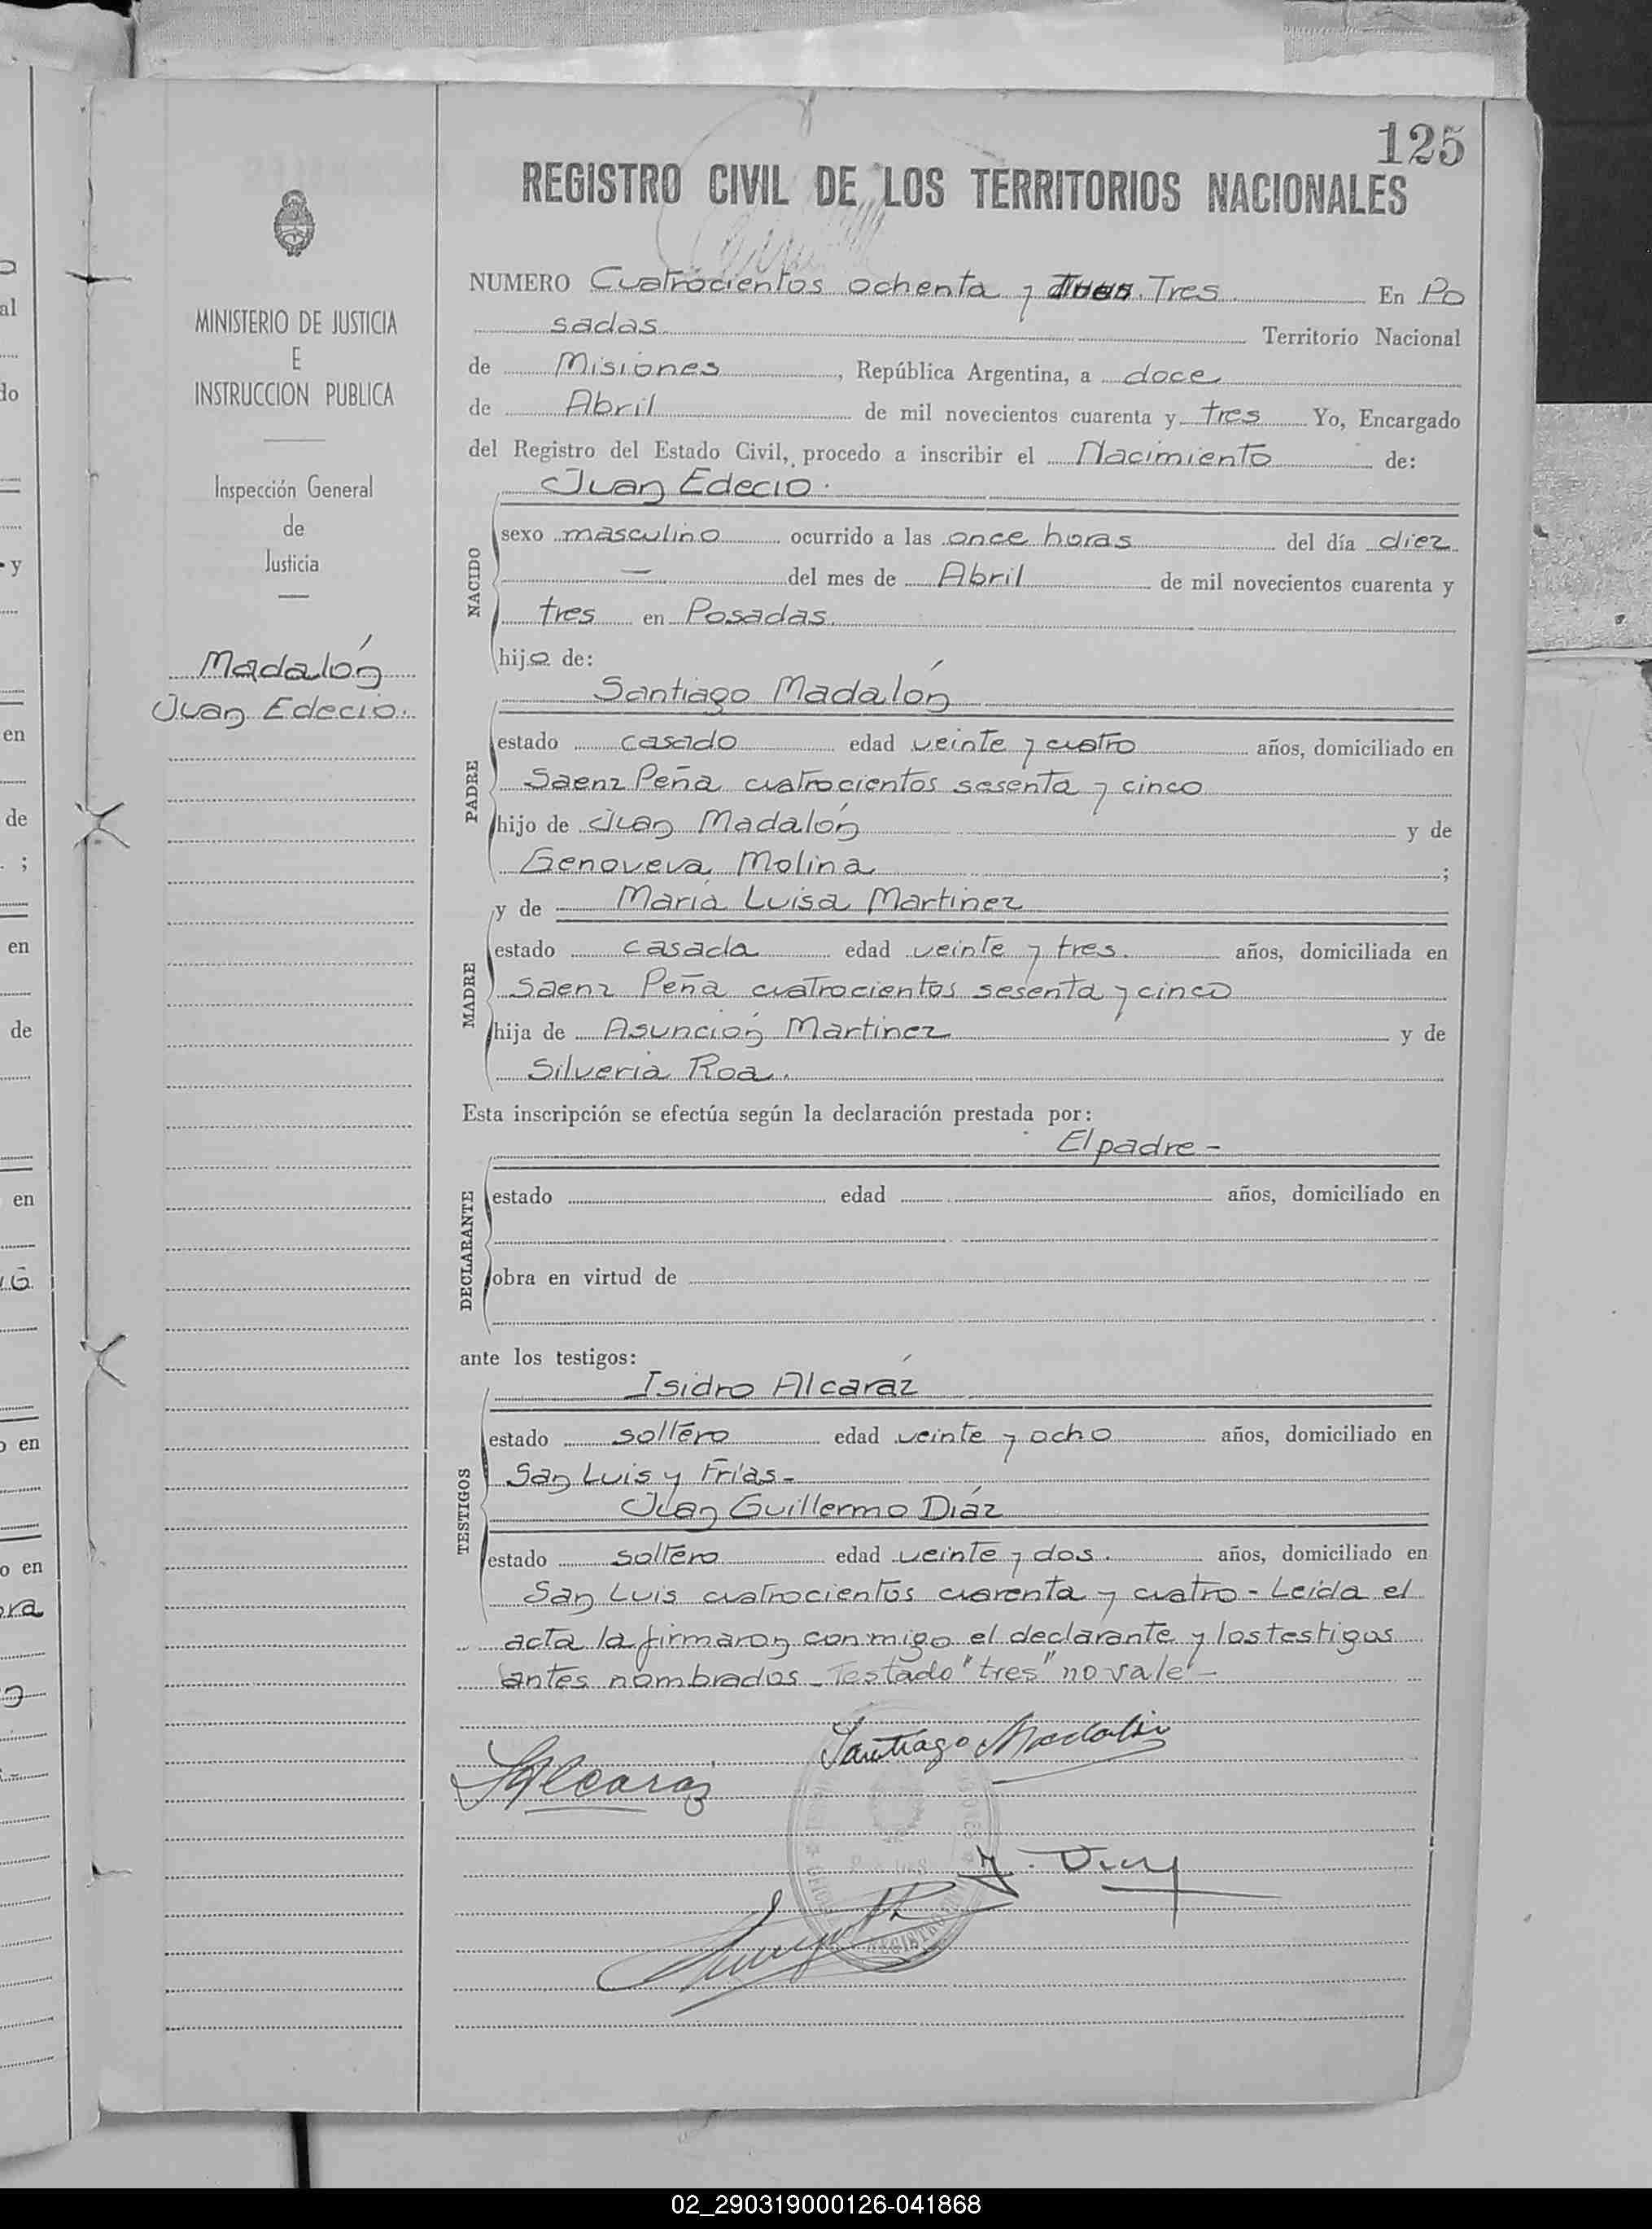 125
REGISTRO CIVIL DE LOS TERRITORIOS NACIONALES
MINISTERIO DE JUSTICIA
E
INSTRUCCION PUBLICA
Inspección General
de
Justicia
Madalón
Juan Edecio.
NUMERO Cuatrocientos ochenta y Tres. En Po
sadas. Territorio Nacional
de Misiones, República Argentina, a doce
de Abril de mil novecientos cuarenta y tres Yo, Encargado
del Registro del Estado Civil, procedo a inscribir el Nacimiento de:
Juan Edecio.
NACIDO
sexo masculino ocurrido a las once horas del día diez
— del mes de Abril de mil novecientos cuarenta y
tres en Posadas.
hijo de:
Santiago Madalón
PADRE
estado casado edad veinte y cuatro años, domiciliado en
Saenz Peña cuatrocientos sesenta y cinco
hijo de Juan Madalón y de
Genoveva Molina ;
y de Maria Luisa Martinez
MADRE
estado casada edad veinte y tres. años, domiciliada en
Saenz Peña cuatrocientos sesenta y cinco
hija de Asunción Martinez y de
Silveria Roa.
Esta inscripción se efectúa según la declaración prestada por:
El padre -
DECLARANTE
estado edad años, domiciliado en
obra en virtud de
ante los testigos:
Isidro Alcaráz
TESTIGOS
estado soltero edad veinte y ocho años, domiciliado en
San Luis y Frías -
Juan Guillermo Díaz
estado soltero edad veinte y dos. años, domiciliado en
San Luis cuatrocientos cuarenta y cuatro - Leída el
acta la firmaron conmigo el declarante y los testigos
antes nombrados - Testado "tres" no vale -
Santiago Madalón
I Alcaraz
02_290319000126-041868